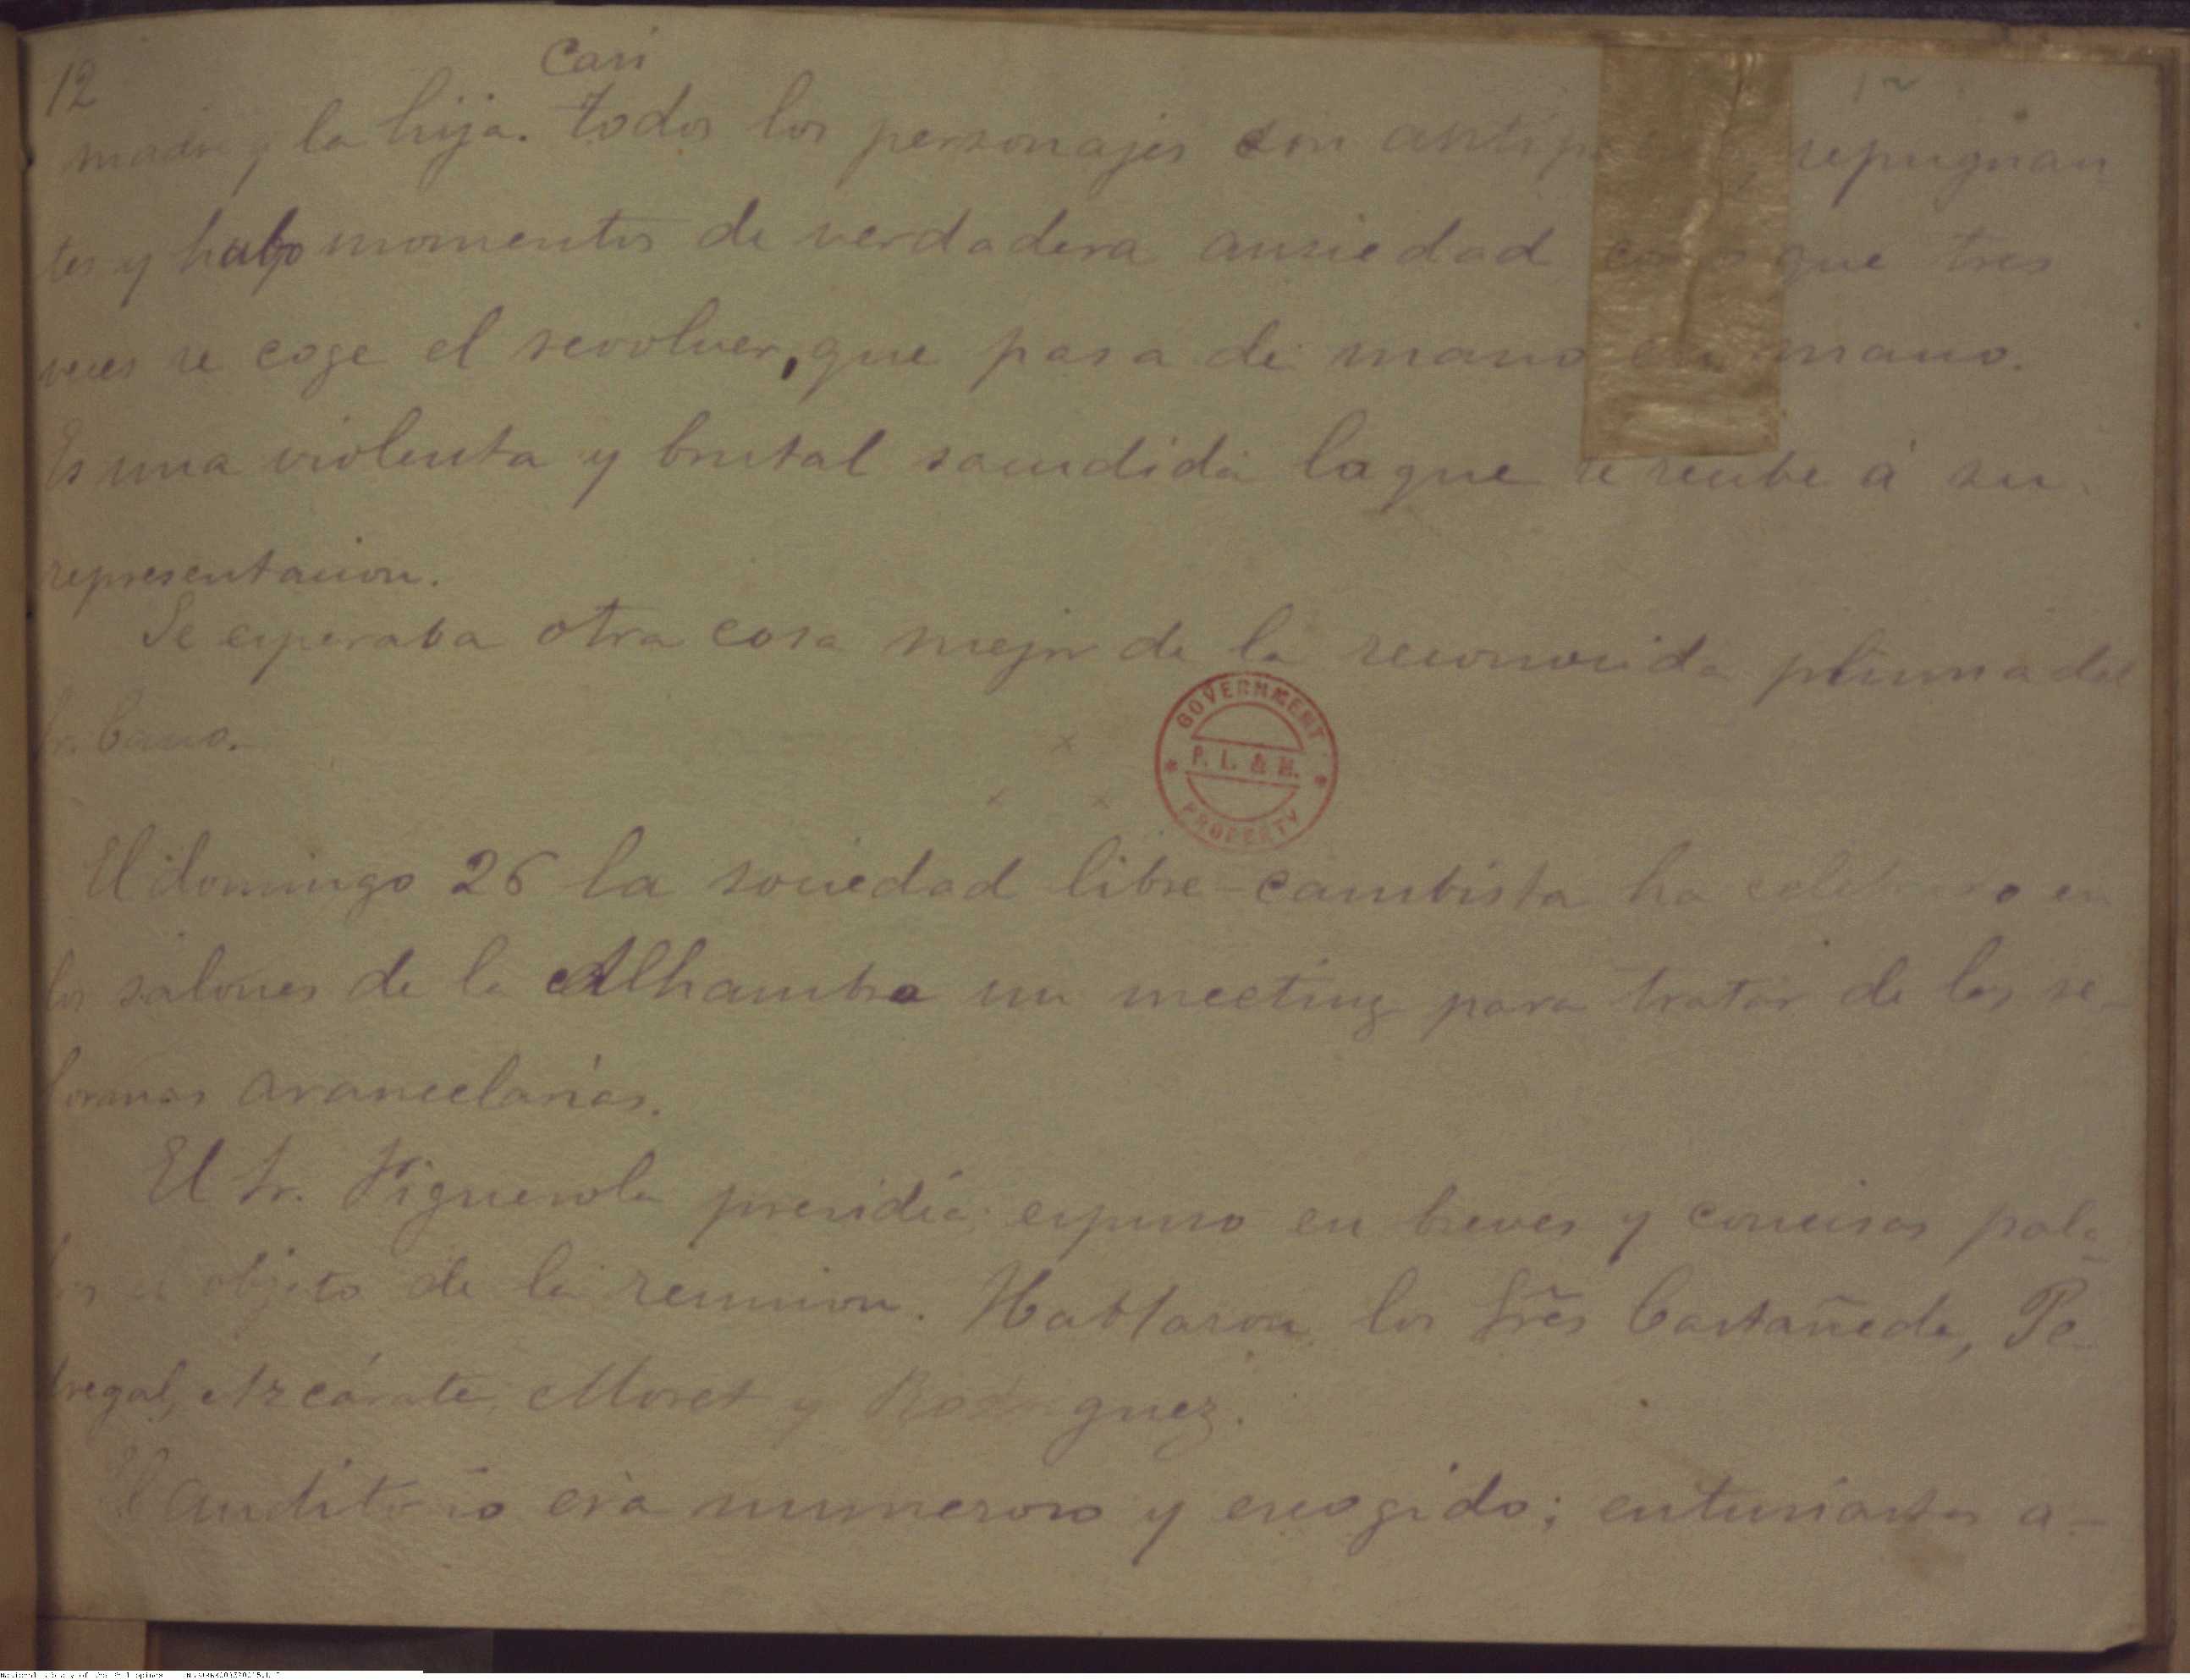 12
12
Casi
madre y la hija. todos los personajes son antip repugnan
tes y hubo momentos de verdadera ansiedad que tres
veces se coge el revolver, que pasa de mano en mano.
Es una violenta y brutal sacudida la que se recibe á su
representacion.
Se esperaba otra cosa mejor de la reconocida pluma del
Sr. Cano.
x
x x
GOVERNMENT
P. L. & M.
PROPERTY
El domingo 26 la sociedad libre-cambista ha celebrado en
los salones de la Alhambra un meeting para tratar de las re-
formas arancelarias.
El Sr. Figuerola presidía; espuso en breves y concisas pala-
bras el objeto de la reunion. Hablaron los Sres Castañeda, Pe
dregal, Azcárate, Moret y Rodriguez.
El auditorio era numeroso y escogido; entusiastas a-